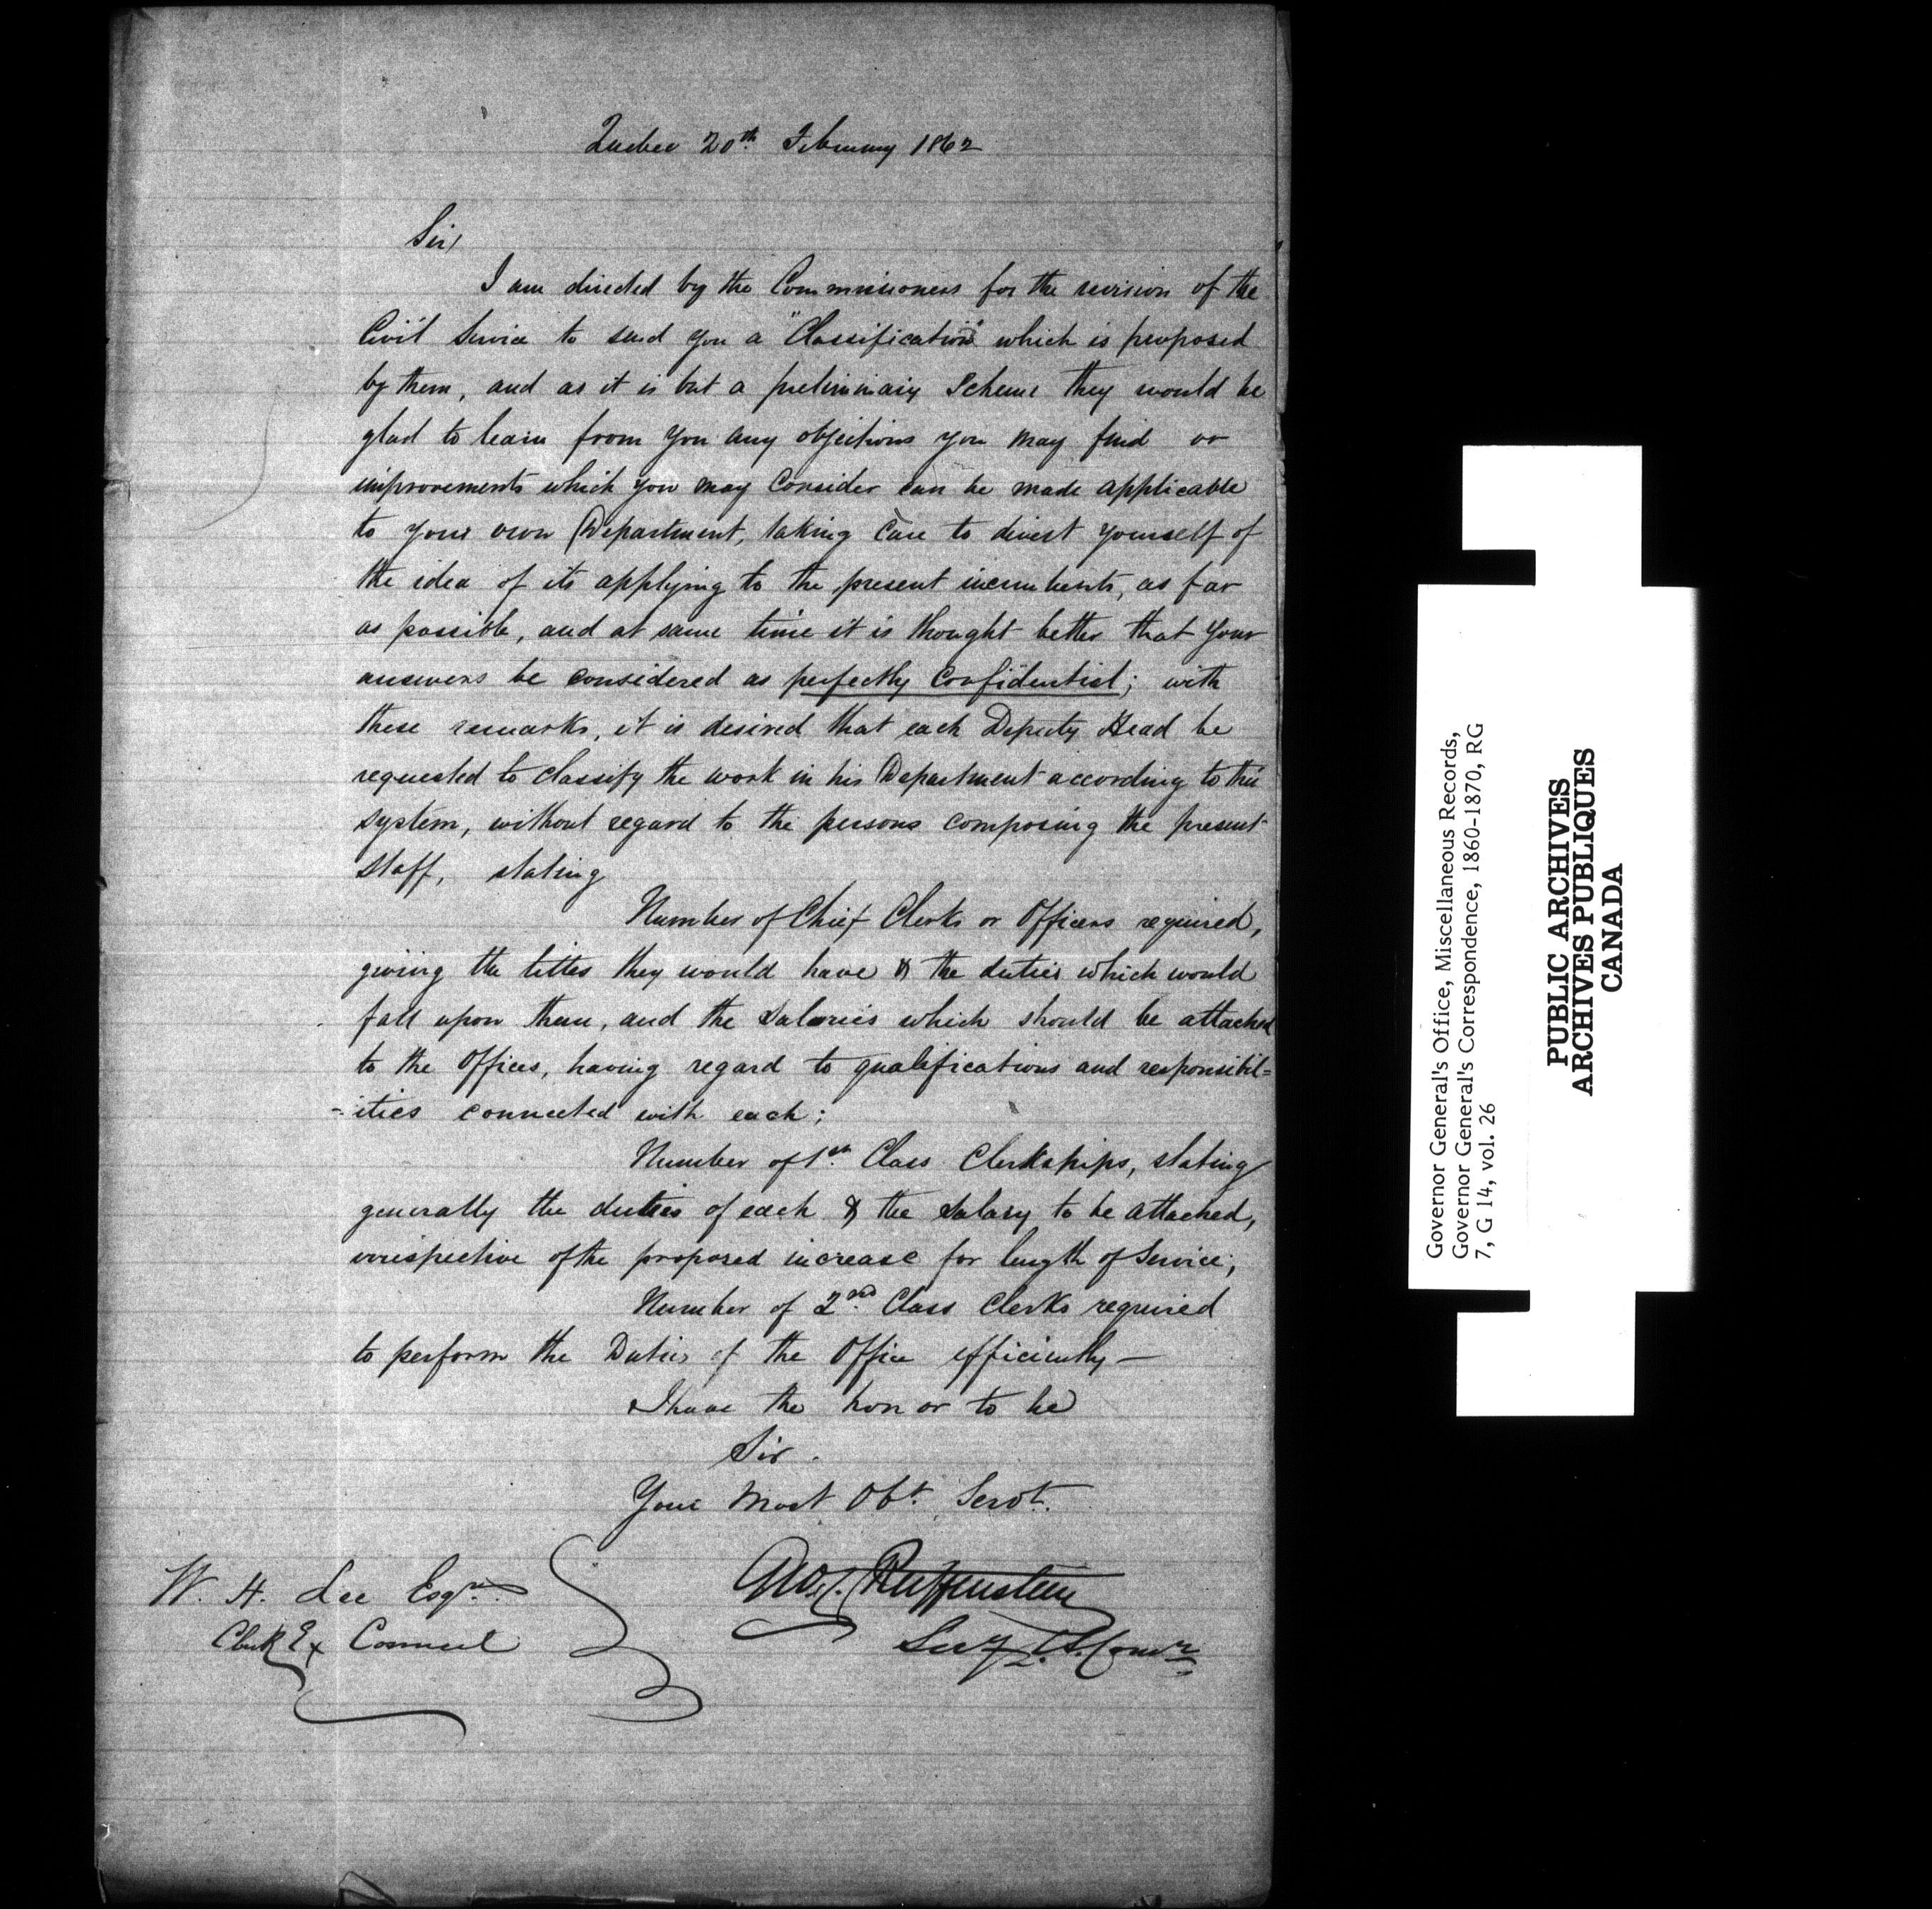 Quebec 20th. February 1862
Sir,
I am directed by the Commissioners for the revision of the
Civil Service to send you a "Classification" which is proposed
by them, and as it is but a preliminary Scheme they would be
glad to learn from you any objections you may find or
improvements which you may Consider can be made applicable
to your own Department, taking Care to divest yourself of
the idea of its applying to the present incumbents, as far
as possible, and at same time it is thought better that your
answers be considered as perfectly Confidential; with
these remarks, it is desired that each Deputy Head be
requested to classify the work in his Department according to this
system, without regard to the persons composing the present
staff, stating
Number of Chief Clerks or Officers required,
giving the titles they would have & the duties which would
fall upon them, and the Salaries which should be attached
to the Offices, having regard to qualifications and responsibil=
-ities connected with each;
Number of 1st. Class Clerkships, stating
generally the duties of each & the Salary to be attached,
irrispective of the proposed increase for length of Service;
Number of 2nd. Class Clerks required
to perform the Duties of the Office efficiently—
I have the honor to be
Sir.
Your Most Obt. Servt.
W. H. Lee Esqre.
Geo. Reiffenstein
Clerk Ex Council
Secy C.S. Comrs
Governor General's Office, Miscellaneous Records,
Governor General's Correspondence, 1860-1870, RG
7, G 14, vol. 26
PUBLIC ARCHIVES
ARCHIVES PUBLIQUES
CANADA